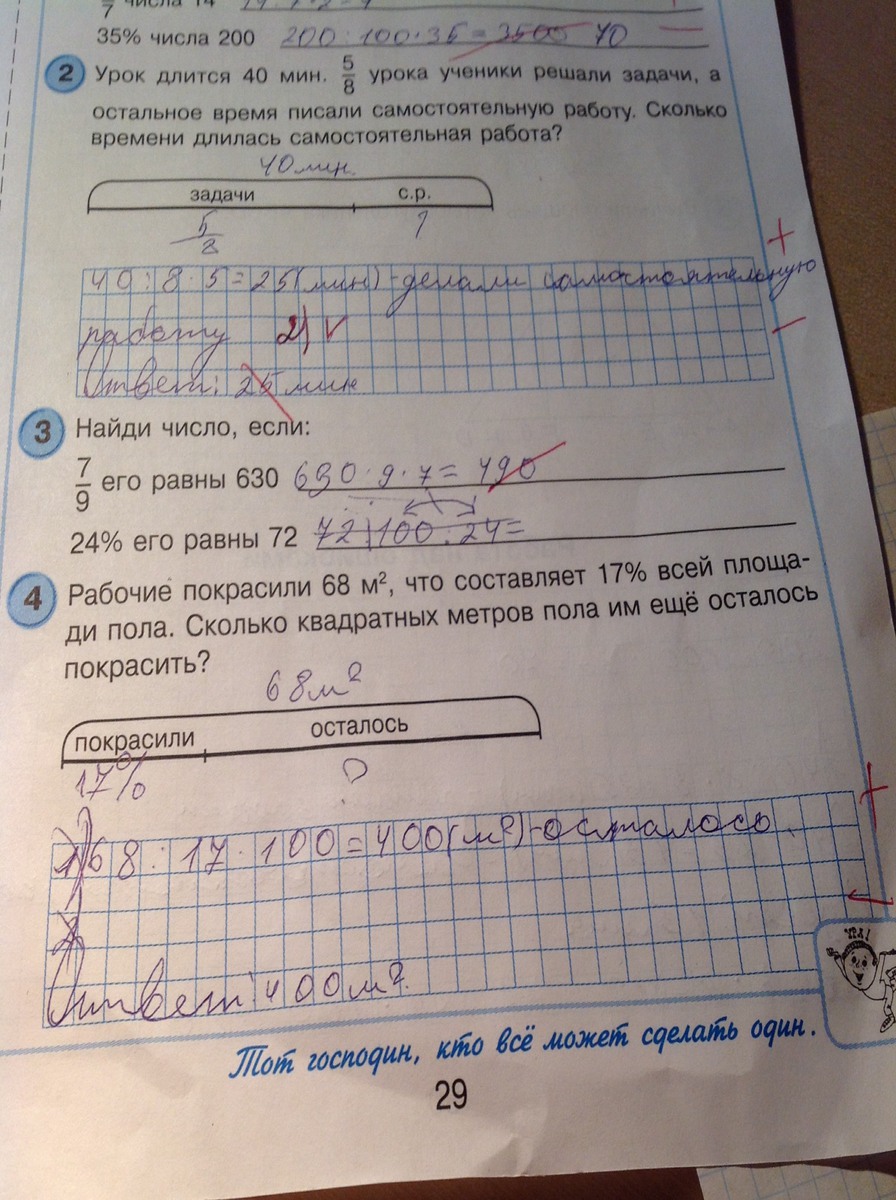 7 числа 14
35% числа 200 200 : 100 · 35 = 3500 70
2 Урок длится 40 мин. 5/8 урока ученики решали задачи, а
остальное время писали самостоятельную работу. Сколько
времени длилась самостоятельная работа?
40 мин.
задачи с.р.
5/8 ?
40 : 8 · 5 = 25 (мин) - делали самостоятельную
работу 2)
Ответ: 25 мин
3 Найди число, если:
7/9 его равны 630 630 · 9 · 7 = 490
24% его равны 72 72 100 : 24 =
4 Рабочие покрасили 68 м², что составляет 17% всей площа-
ди пола. Сколько квадратных метров пола им ещё осталось
покрасить?
68 м²
покрасили осталось
17% ?
1) 68 : 17 · 100 = 400 (м²) - осталось
Ответ: 400 м²
УРА!
Тот господин, кто всё может сделать один.
29